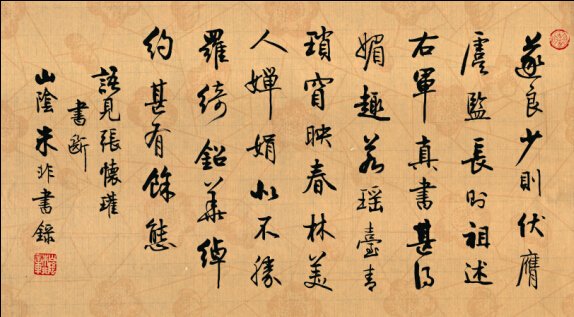 遂良少則伏膺
虞監長則祖述
右軍真書甚得
媚趣若瑶臺青
瑣窗映春林美
人嬋娟似不勝
羅綺鉛華綽
約甚有餘態
語見張懷瓘
書斷
山陰朱非書錄